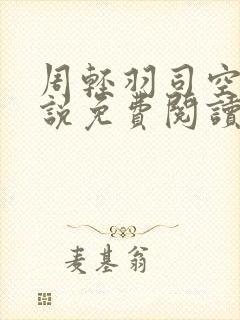 周輕羽司空
說免費閱讀
麦基翁